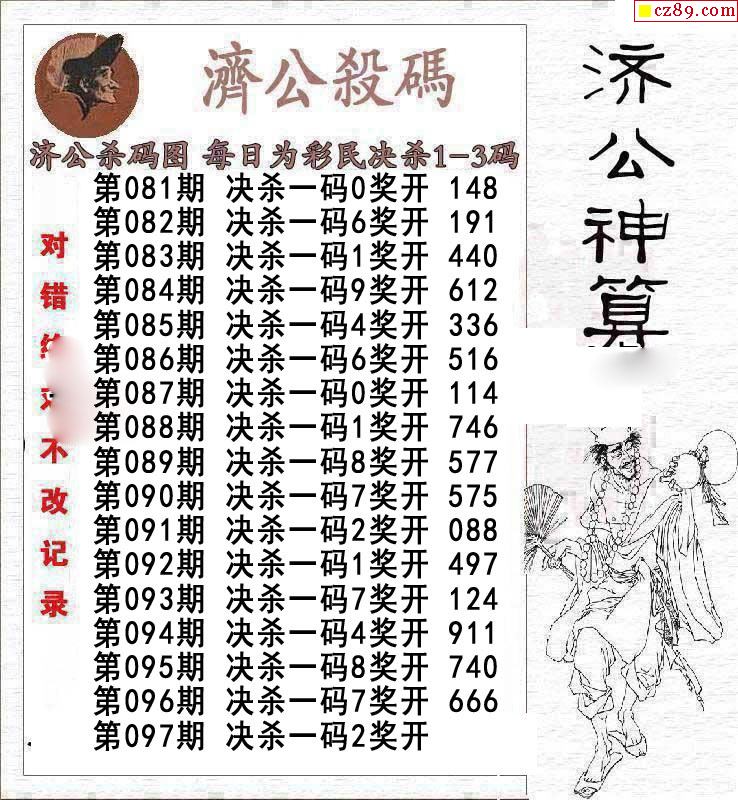 cz89.com
濟公殺碼
济公杀码图 每日为彩民决杀1-3码
第081期 决杀一码0奖开 148
第082期 决杀一码6奖开 191
第083期 决杀一码1奖开 440
第084期 决杀一码9奖开 612
第085期 决杀一码4奖开 336
第086期 决杀一码6奖开 516
第087期 决杀一码0奖开 114
第088期 决杀一码1奖开 746
第089期 决杀一码8奖开 577
第090期 决杀一码7奖开 575
第091期 决杀一码2奖开 088
第092期 决杀一码1奖开 497
第093期 决杀一码7奖开 124
第094期 决杀一码4奖开 911
第095期 决杀一码8奖开 740
第096期 决杀一码7奖开 666
第097期 决杀一码2奖开
对错不改记录
济公神算